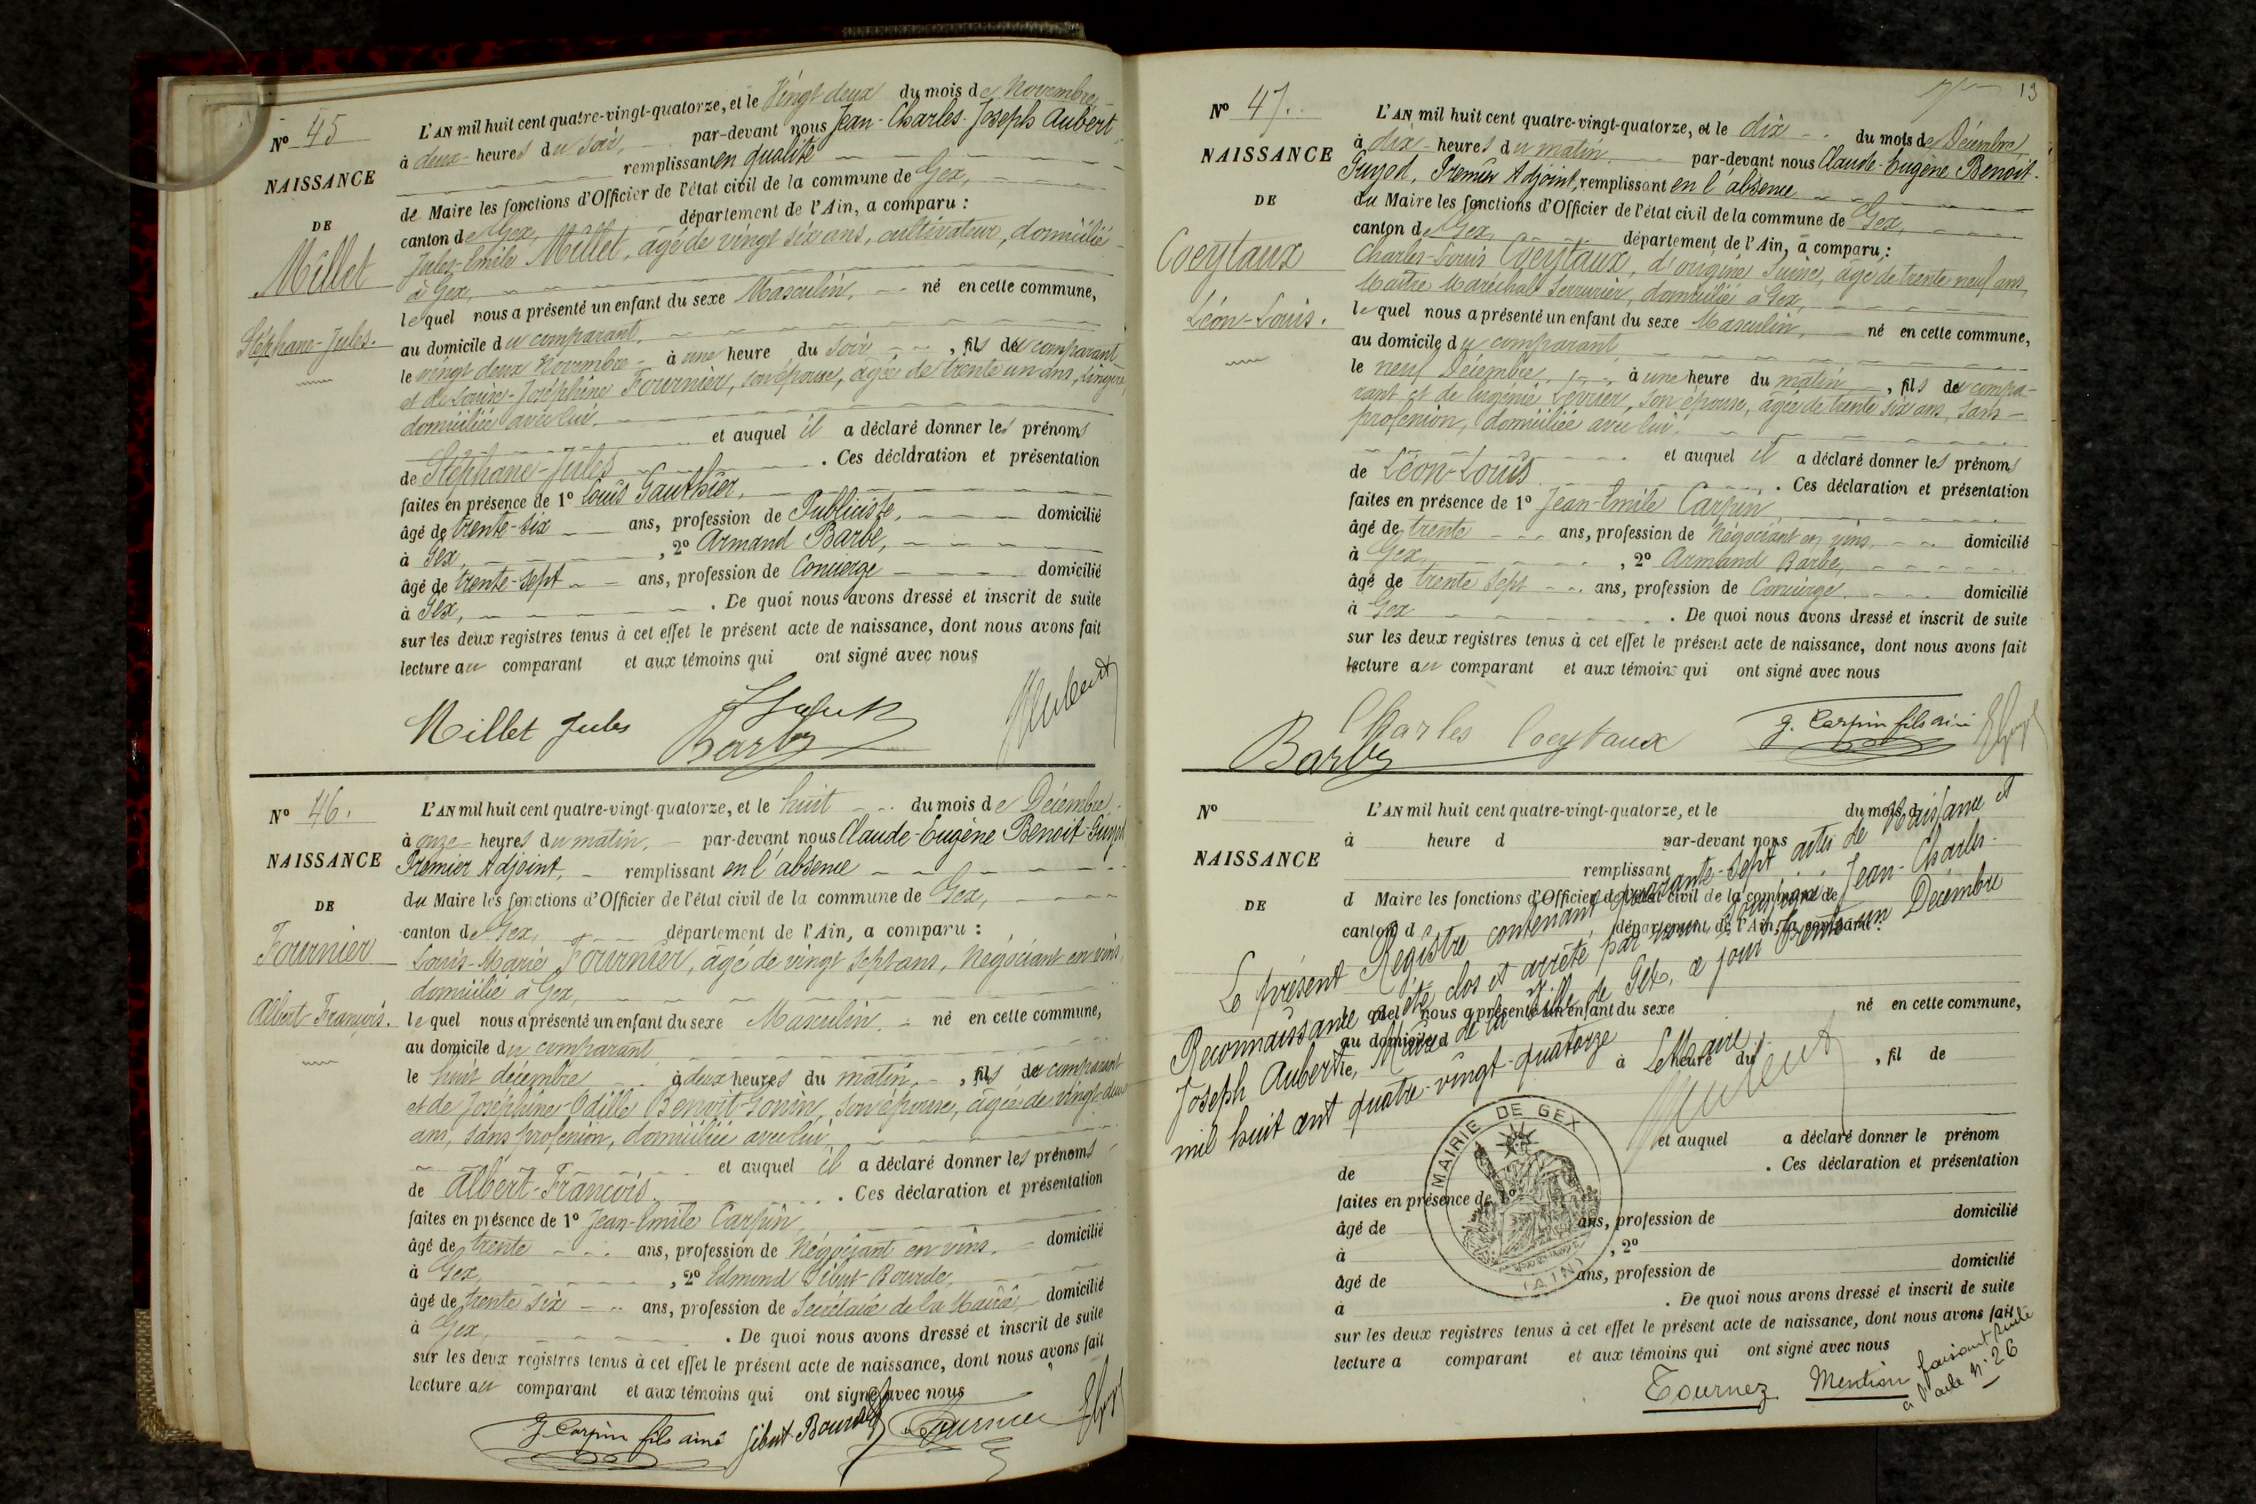 Nº 45
NAISSANCE
DE
Millet
Stéphane-Jules.
L'AN mil huit cent quatre-vingt-quatorze, et le Vingt deux du mois de Novembre,
à deux heures du soir, par-devant nous Jean-Charles-Joseph Aubert
remplissant en qualité
de Maire les fonctions d'Officier de l'état civil de la commune de Gex,
canton de Gex, département de l'Ain, a comparu :
Jules-Emile Millet, âgé de vingt six ans, cultivateur, domicilié
à Gex,
lequel nous a présenté un enfant du sexe Masculin, né en cette commune,
au domicile du comparant,
le vingt deux Novembre à une heure du soir, fils du comparant
et de Louise-Joséphine Fournier, son épouse, âgée de trente un ans, lingère,
domiciliée avec lui.
et auquel il a déclaré donner les prénoms
de Stéphane-Jules. Ces déclaration et présentation
faites en présence de 1º Louis Gauthier,
âgé de trente-six ans, profession de Publiciste, domicilié
à Gex, , 2º Armand Barbe,
âgé de trente-sept ans, profession de Concierge domicilié
à Gex, . De quoi nous avons dressé et inscrit de suite
sur les deux registres tenus à cet effet le présent acte de naissance, dont nous avons fait
lecture au comparant et aux témoins qui ont signé avec nous
Millet Jules
Barbe
Aubert
Nº 46.
NAISSANCE
DE
Fournier
Albert-François.
L'AN mil huit cent quatre-vingt-quatorze, et le huit du mois de Décembre
à onze heures du matin, par-devant nous Claude-Eugène Benoit-Guyod
Premier Adjoint, remplissant en l'absence
du Maire les fonctions d'Officier de l'état civil de la commune de Gex,
canton de Gex, département de l'Ain, a comparu :
Louis-Marie Fournier, âgé de vingt sept ans, Négociant en vins,
domicilié à Gex,
lequel nous a présenté un enfant du sexe Masculin né en cette commune,
au domicile du comparant
le huit décembre à deux heures du matin, fils du comparant
et de Joséphine-Odille Benoit-Gonin, son épouse, âgée de vingt-deux
ans, sans profession, domiciliée avec lui,
et auquel il a déclaré donner les prénoms
de Albert-François. Ces déclaration et présentation
faites en présence de 1º Jean-Emile Carpin,
âgé de trente ans, profession de Négociant en vins, domicilié
à Gex, , 2º Edmond Gibut-Bourde,
âgé de trente six ans, profession de Secrétaire de la Mairie, domicilié
à Gex, . De quoi nous avons dressé et inscrit de suite
sur les deux registres tenus à cet effet le présent acte de naissance, dont nous avons fait
lecture au comparant et aux témoins qui ont signé avec nous
J. Carpin fils ainé Gibut-Bourde Fournier
13
Nº 47.
NAISSANCE
DE
Coeytaux
Léon-Louis.
L'AN mil huit cent quatre-vingt-quatorze, et le dix du mois de Décembre,
à dix heures du matin par-devant nous Claude-Eugène Benoit-
Guyod, Premier Adjoint, remplissant en l'absence
du Maire les fonctions d'Officier de l'état civil de la commune de Gex,
canton de Gex, département de l'Ain, a comparu :
Charles-Louis Coeytaux, d'origine Suisse, âgé de trente neuf ans,
Maître Maréchal Serrurier, domicilié à Gex,
lequel nous a présenté un enfant du sexe Masculin, né en cette commune,
au domicile du comparant
le neuf Décembre, à une heure du matin, fils du compa-
rant et de Eugénie Levrier, son épouse, âgée de trente six ans, sans
profession, domiciliée avec lui.
et auquel il a déclaré donner les prénoms
de Léon-Louis. Ces déclaration et présentation
faites en présence de 1º Jean-Emile Carpin,
âgé de trente ans, profession de Négociant en vins, domicilié
à Gex, , 2º Armand Barbe,
âgé de trente sept ans, profession de Concierge domicilié
à Gex . De quoi nous avons dressé et inscrit de suite
sur les deux registres tenus à cet effet le présent acte de naissance, dont nous avons fait
lecture au comparant et aux témoins qui ont signé avec nous
Barbe Charles Coeytaux J. Carpin fils ainé
Nº
NAISSANCE
DE
L'AN mil huit cent quatre-vingt-quatorze, et le du mois d
à heure d par-devant nous
remplissant
d Maire les fonctions d'Officier de l'état civil de la commune de
canton d département de l'Ain, a comparu :
Le présent Registre contenant quarante-sept actes de Naissance et
Reconnaissance a été clos et arrêté par nous soussigné Jean-Charles-
Joseph Aubert, Maire de la Ville de Gex, ce jour trente-un Décembre
mil huit cent quatre-vingt-quatorze
Le Maire,
Aubert
quel nous a présenté un enfant du sexe né en cette commune,
au domicile d
le, à heure du , fil de
et auquel a déclaré donner le prénom
de . Ces déclaration et présentation
faites en présence de 1º
âgé de ans, profession de domicilié
à , 2º
âgé de ans, profession de domicilié
à . De quoi nous avons dressé et inscrit de suite
sur les deux registres tenus à cet effet le présent acte de naissance, dont nous avons fait
lecture a comparant et aux témoins qui ont signé avec nous
MAIRIE DE GEX
(AIN)
Tournez Mention faisant suite
à l'acte Nº 26